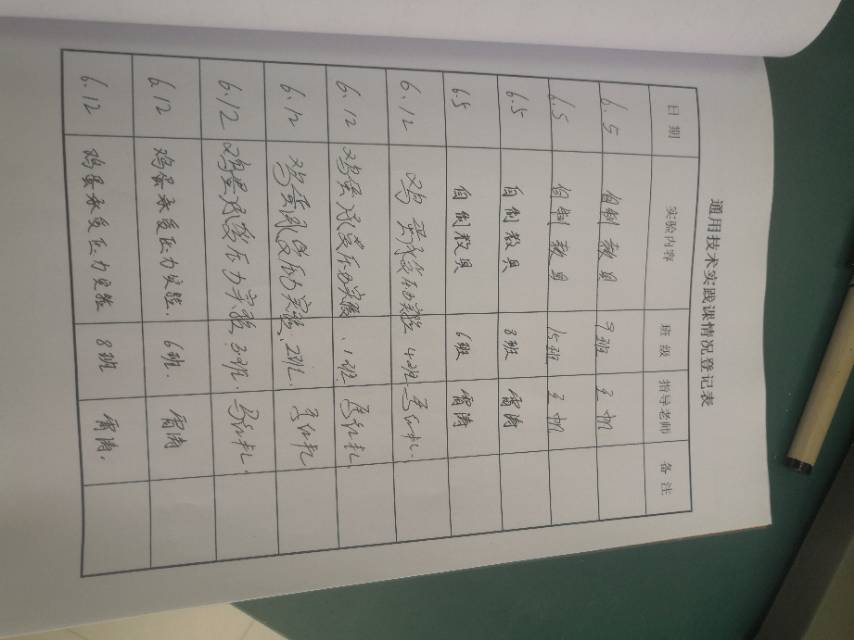 通用技术实践课情况登记表
日期 实验内容 班级 指导老师 备注
6.5 自制教具 9班 王帆
6.5 自制教具 15班 王帆
6.5 自制教具 8班 雷涛
6.5 自制教具 6班 雷涛
6.12 鸡蛋承受压力实验 4班 马红轧.
6.12 鸡蛋承受压力实验、1班. 马红轧.
6.12 鸡蛋承受压力实验、2班. 马红轧
6.12 鸡蛋承受压力实验. 3班. 马红轧.
6.12 鸡蛋承受压力实验. 6班. 雷涛
6.12 鸡蛋承受压力实验 8班 雷涛.